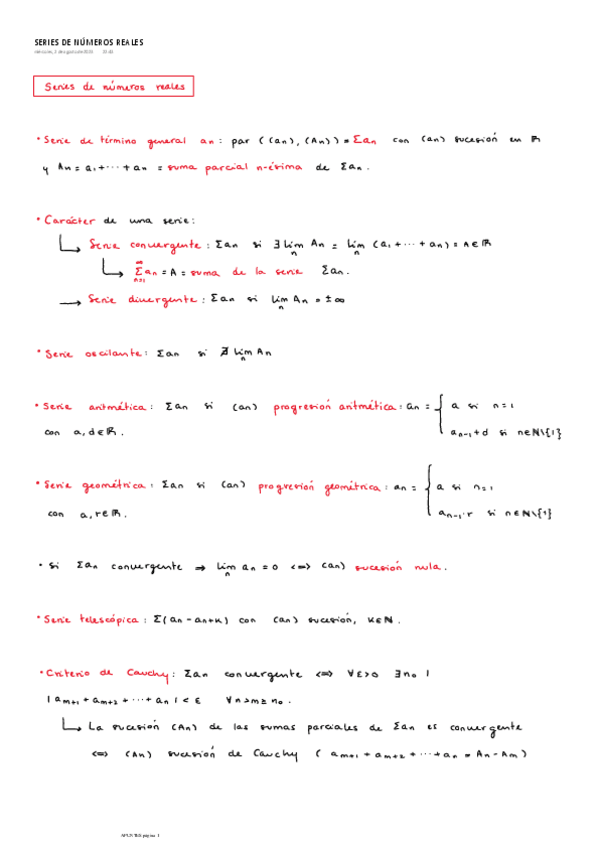 SERIES DE NÚMEROS REALES
Series de números reales
• Serie de término general an: par ((an), (An)) ≡ Σan con (an) sucesión en ℝ
y An = a₁ + ··· + an = suma parcial n-ésima de Σan.
• Carácter de una serie:
↳ Serie convergente: Σan si ∃ lim_n An = lim_n (a₁ + ··· + an) = A ∈ ℝ
↳ Σ_{n=1}^{∞} an = A = suma de la serie Σan.
→ Serie divergente: Σan si lim_n An = ±∞
• Serie oscilante: Σan si ∄ lim_n An
• Serie aritmética: Σan si (an) progresión aritmética: an = { a si n=1
con a,d∈ℝ. a_{n-1}+d si n∈ℕ\{1}
• Serie geométrica: Σan si (an) progresión geométrica: an = { a si n=1
con a,r∈ℝ. a_{n-1}·r si n∈ℕ\{1}
• Si Σan convergente ⇒ lim_n an = 0 ⇔ (an) sucesión nula.
• Serie telescópica: Σ(an - an+k) con (an) sucesión, k∈ℕ.
• Criterio de Cauchy: Σan convergente ⇔ ∀ε>0 ∃n₀ |
|a_{m+1} + a_{m+2} + ··· + an| < ε ∀n>m≥n₀.
↳ La sucesión (An) de las sumas parciales de Σan es convergente
⇔ (An) sucesión de Cauchy (a_{m+1} + a_{m+2} + ··· + an = An - Am)
APUNTES página 1